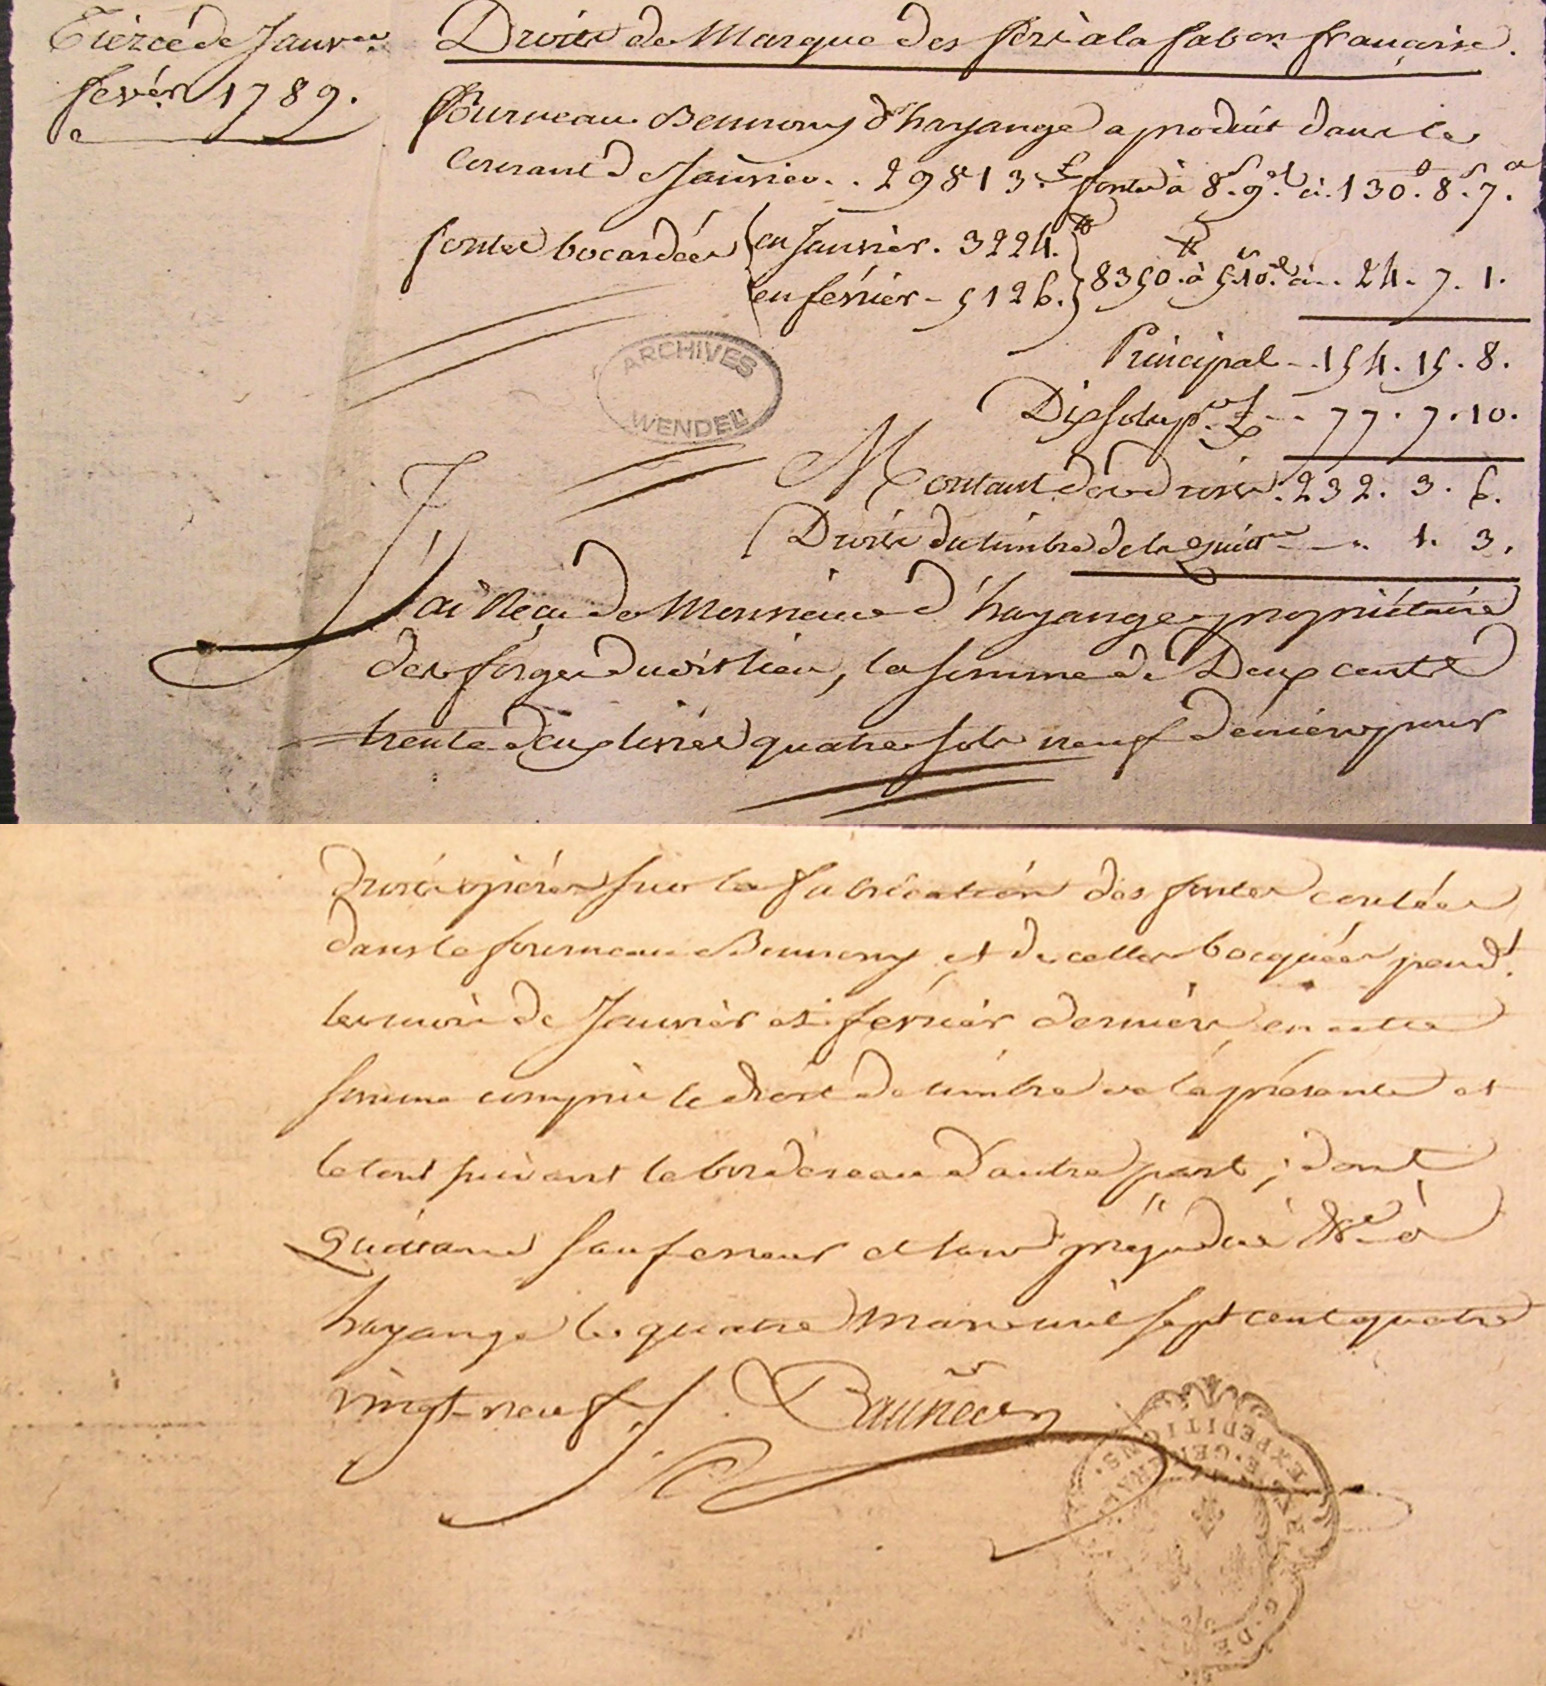 Exercé de Janvier
févér 1789.
Droits de Marque des fers à la fabon. française.
fourneau Beaurony d'hayange a produit dans le
courant de Janvier . . 29813.# fonte à 8.s 9.d à . 130.# 8.s 7.d
fontes bocardées en Janvier . 3224.#
en février - 5126.
8350.# à 5.s 10.d à . . 24 . 7 . 1 .
Principal - . 154 . 15 . 8 .
Dix sols p.r # - . 77 . 7 . 10 .
ARCHIVES
WENDEL
Montant des droits . 232 . 3 . 6 .
Droits du timbre de la quitt.ce - - . 1 . 3 .
J'ai Reçu de Monsieur d'hayange propriétaire
des forges du dit lieu, la somme de Deux cents
trente deux livres quatre sols neuf deniers pour
droits opérés sur la fabrication des fontes coulées
dans le fourneau Beaurony et de celles bocquées pend.t
les mois de Janvier et février derniers, en cette
somme compris le droit de timbre de la présente et
le tout suivant le bordereau d'autre part ; dont
Quittance sauf erreur et sans préjudice &c.e à
hayange le quatre Mars mil sept cent quatre
vingt neuf /.
G. DE
EXPEDITIONS